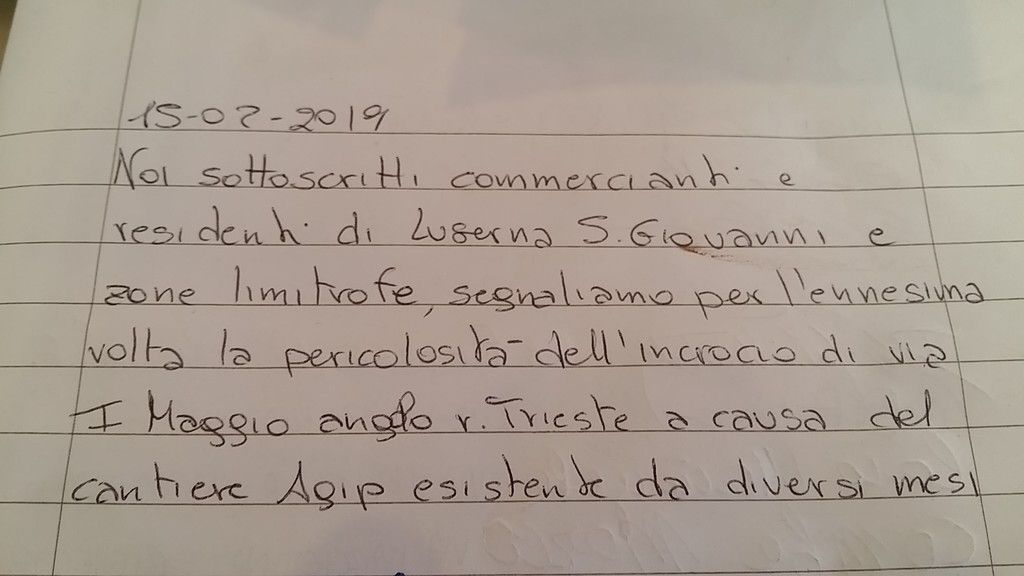 15-02-2019
Noi sottoscritti commercianti e
residenti di Luserna S. Giovanni e
zone limitrofe, segnaliamo per l'ennesima
volta la pericolosità dell'incrocio di via
I Maggio angolo v. Trieste a causa del
cantiere Agip esistente da diversi mesi